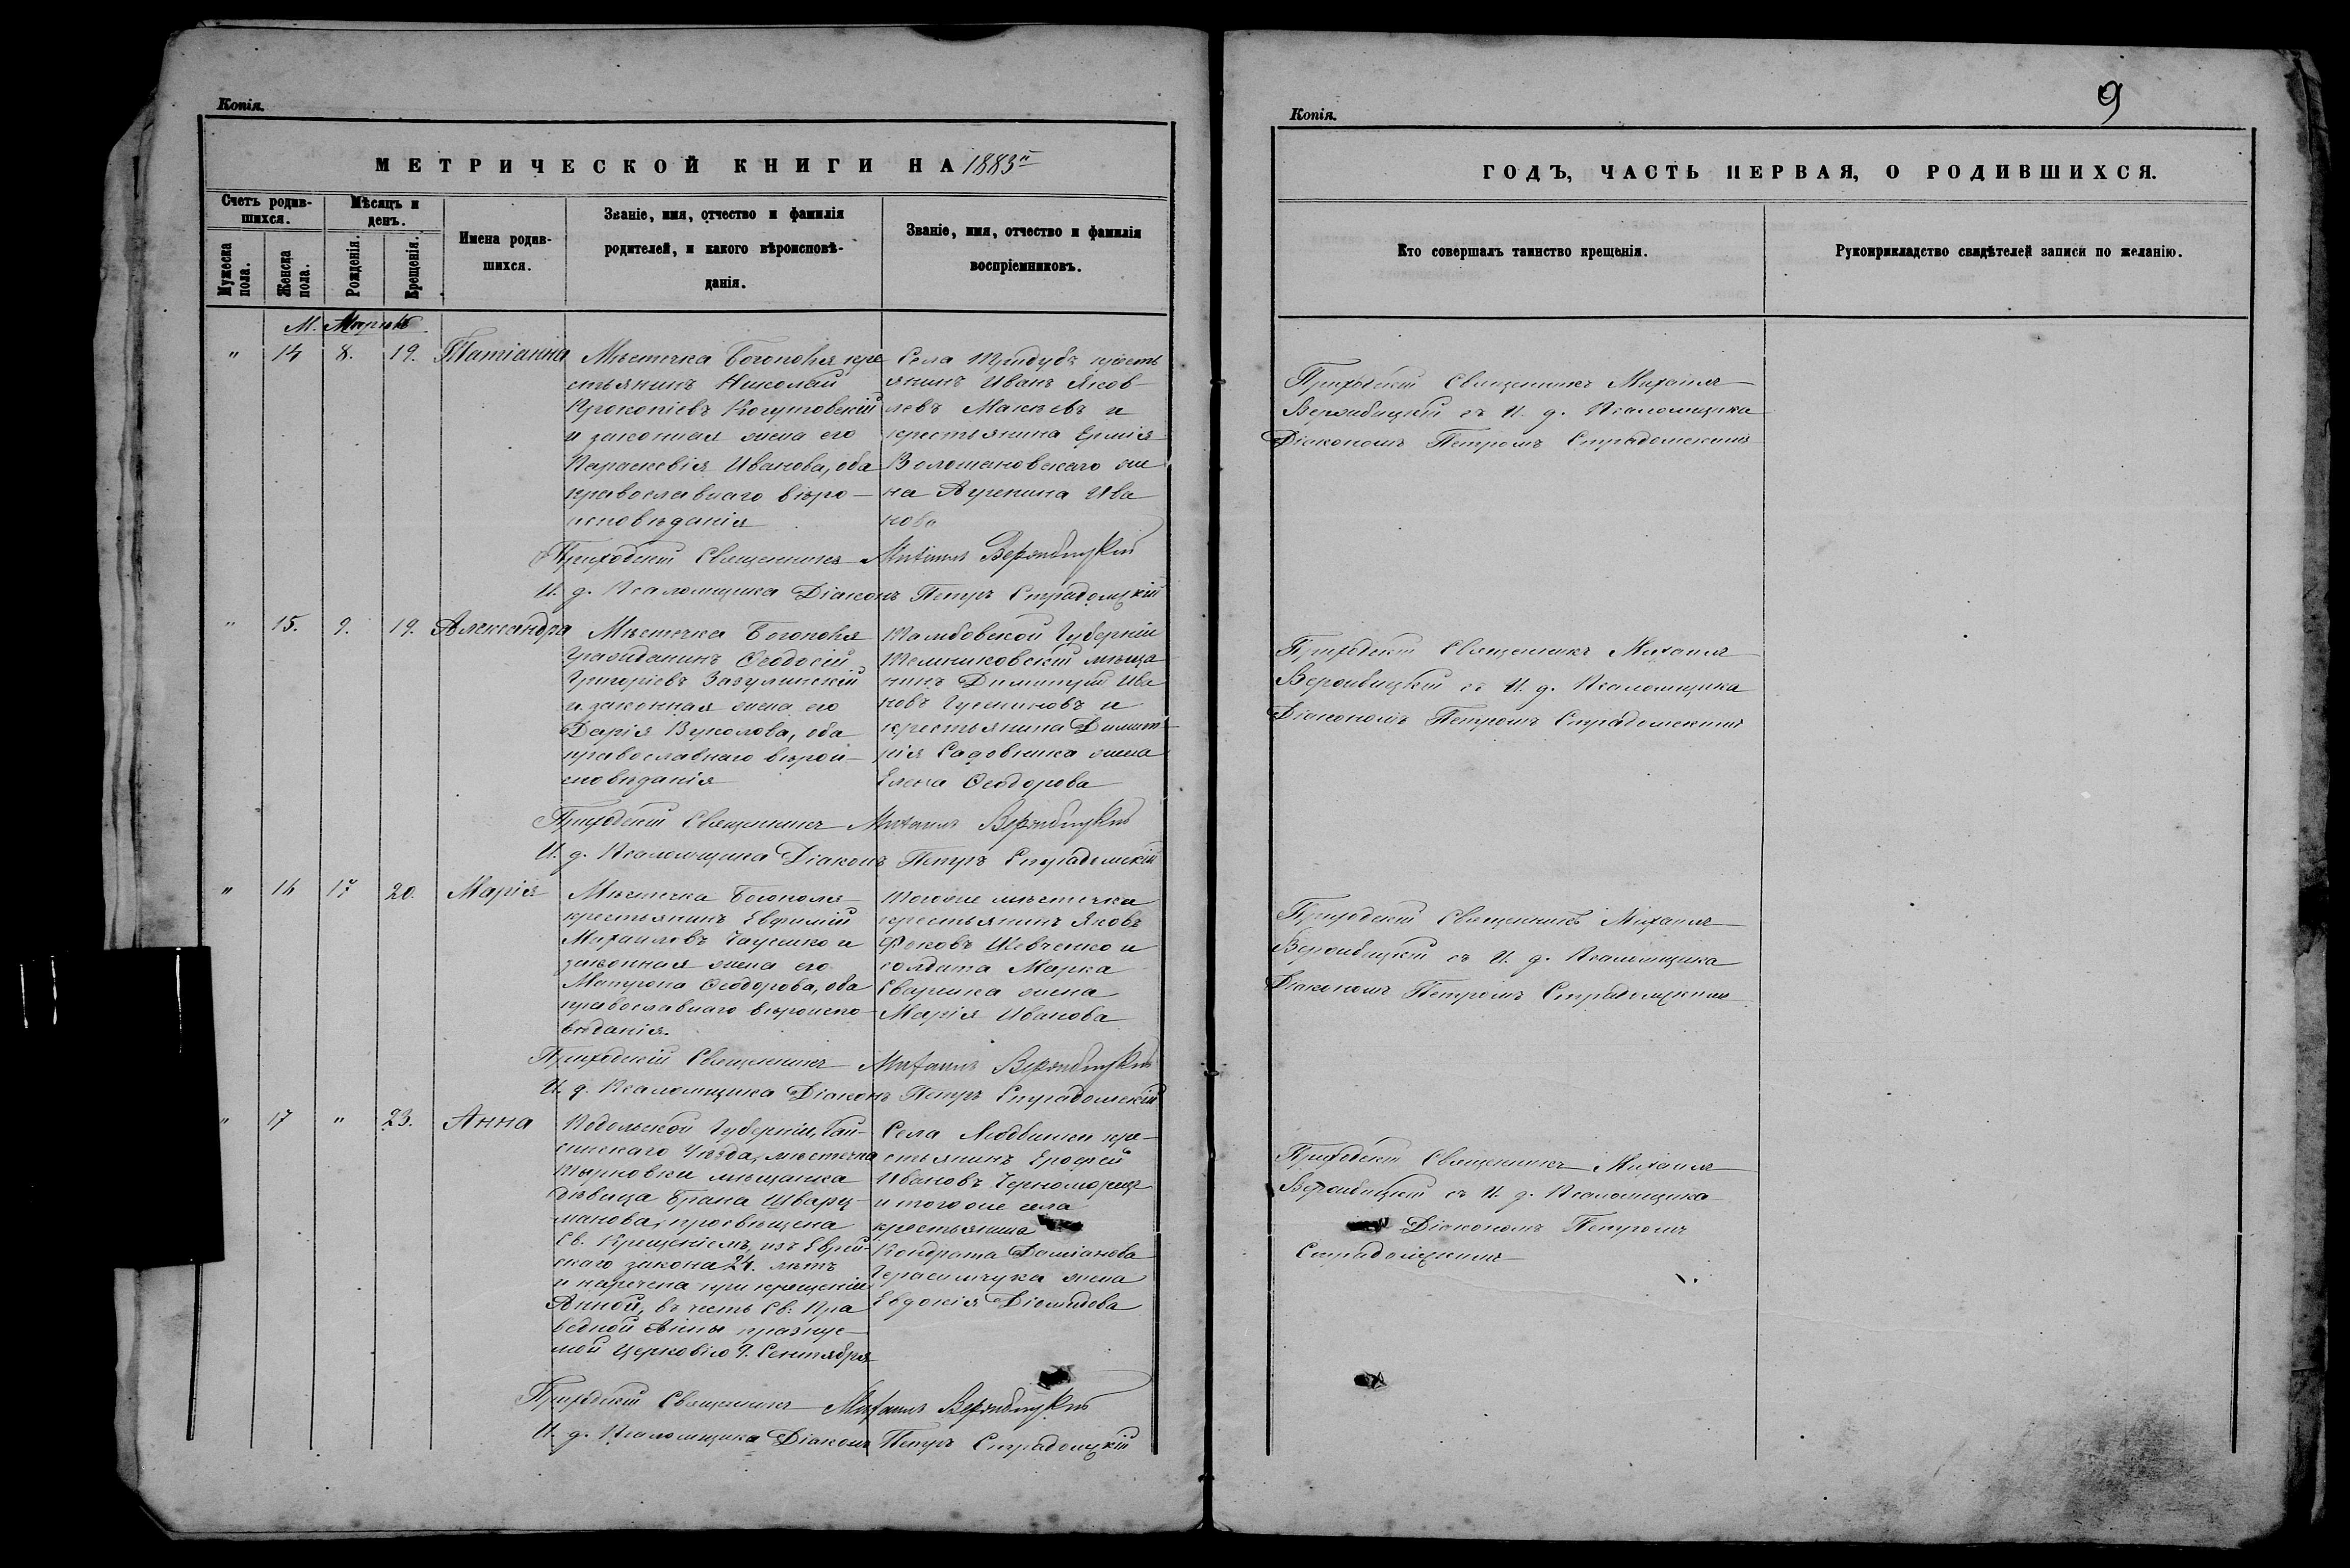 Копія.
МЕТРИЧЕСКОЙ КНИГИ НА 1883й
Счетъ родив-
шихся.
Мѣсяцъ и
день.
Имена родив-
шихся.
Званіе, имя, отчество и фамилія
родителей, и какого вѣроисповѣ-
данія.
Званіе, имя, отчество и фамилія
воспріемниковъ.
Мужеска пола.
Женска пола.
Рожденія.
Крещенія.
М. Мартъ
" 14 8. 19. Татіанна
Мѣстечка Богополя кре
стьянинъ Николай
Прокопіевъ Когутовскій
и законная жена его
Параскевія Иванова, оба
православнаго вѣро-
исповѣданія
Села Тридубъ кресть
янинъ Иванъ Яков-
левъ Макѣевъ и
крестьянина Ермія
Волошановскаго же
на Агрепина Ива
нова
Приходскій Священникъ Михаилъ Вержбицкій
И. д. Псаломщика Діаконъ Петръ Страдомскій
" 15. 9. 19. Александра
Мѣстечка Богополя
Гражданинъ Ѳеодосій
Григоріевъ Загулинскій
и законная жена его
Дарія Вуколова, оба
православнаго вѣрои-
сповѣданія
Тамбовской Губерніи
Темниковскій мѣща
нинъ Димитрій Ива
новъ и
крестьянина Димит-
рія Садовника жена
Елена Ѳеодорова
Приходскій Священникъ Михаилъ Вержбицкій
И. д. Псаломщика Діаконъ Петръ Страдомскій
" 16 17 20. Марія
Мѣстечка Богополя
крестьянинъ Евфимій
Михаиловъ и
законная жена его
Матрона Ѳеодорова, оба
православнаго вѣроиспо-
вѣданія.
Тогоже мѣстечка
крестьянинъ Яковъ
Фоковъ Шевченко и
солдата Марка
Сварника жена
Марія Иванова
Приходскій Священникъ Михаилъ Вержбицкій
И. д. Псаломщика Діаконъ Петръ Страдомскій
" 17 " 23. Анна
Подольской Губерніи, Гай-
синскаго Уѣзда, мѣстечка
Терновки мѣщанка
дѣвица Брана Шварц-
манова, просвѣщена
Св. Крещеніемъ, изъ Еврей-
скаго закона 24. лѣтъ
и наречена при крещеніи
Анной, въ честь Св: Пра
ведной Анны празнуе-
мой Церковію 9. Сентября
Села Людвинки кре-
стьянинъ Ерофей
Ивановъ Черноморецъ
и того же села
крестьянина
Кондрата Даміанова
Герасимчука жена
Евдокія Діомидова
Приходскій Священникъ Михаилъ Вержбицкій
И. д. Псаломщика Діаконъ Петръ Страдомскій
9
Копія.
ГОДЪ, ЧАСТЬ ПЕРВАЯ, О РОДИВШИХСЯ.
Кто совершалъ таинство крещенія.
Рукоприкладство свидѣтелей записи по желанію.
Приходскій Священникъ Михаилъ
Вержбицкій съ И. д. Псаломщика
Діакономъ Петромъ Страдомскимъ
Приходскій Священникъ Михаилъ
Вержбицкій съ И. д. Псаломщика
Діакономъ Петромъ Страдомскимъ
Приходскій Священникъ Михаилъ
Вержбицкій съ И. д. Псаломщика
Діакономъ Петромъ Страдомскимъ
Приходскій Священникъ Михаилъ
Вержбицкій съ И. д. Псаломщика
Діакономъ Петромъ
Страдомскимъ